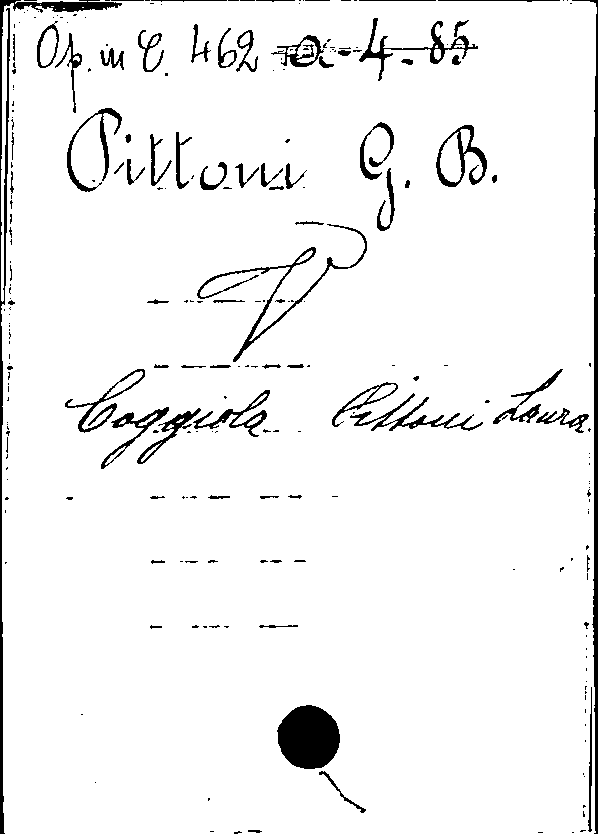 Op. in C. 462 a-4-85
Pittoni G. B.
V
Coggiola Pittoni Laura